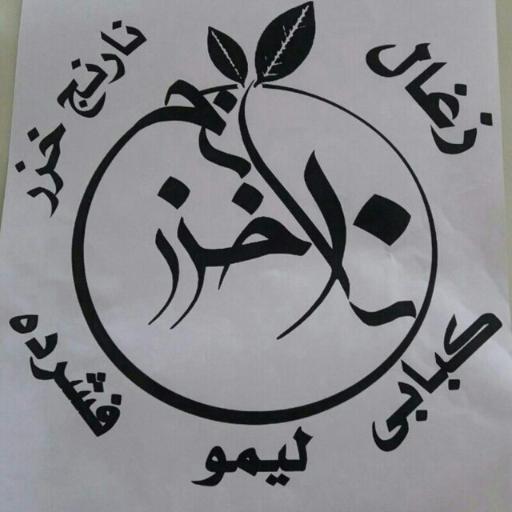 نارنج خزر
ذغال
کبابی
لیمو
فشرده
نارنج خزر